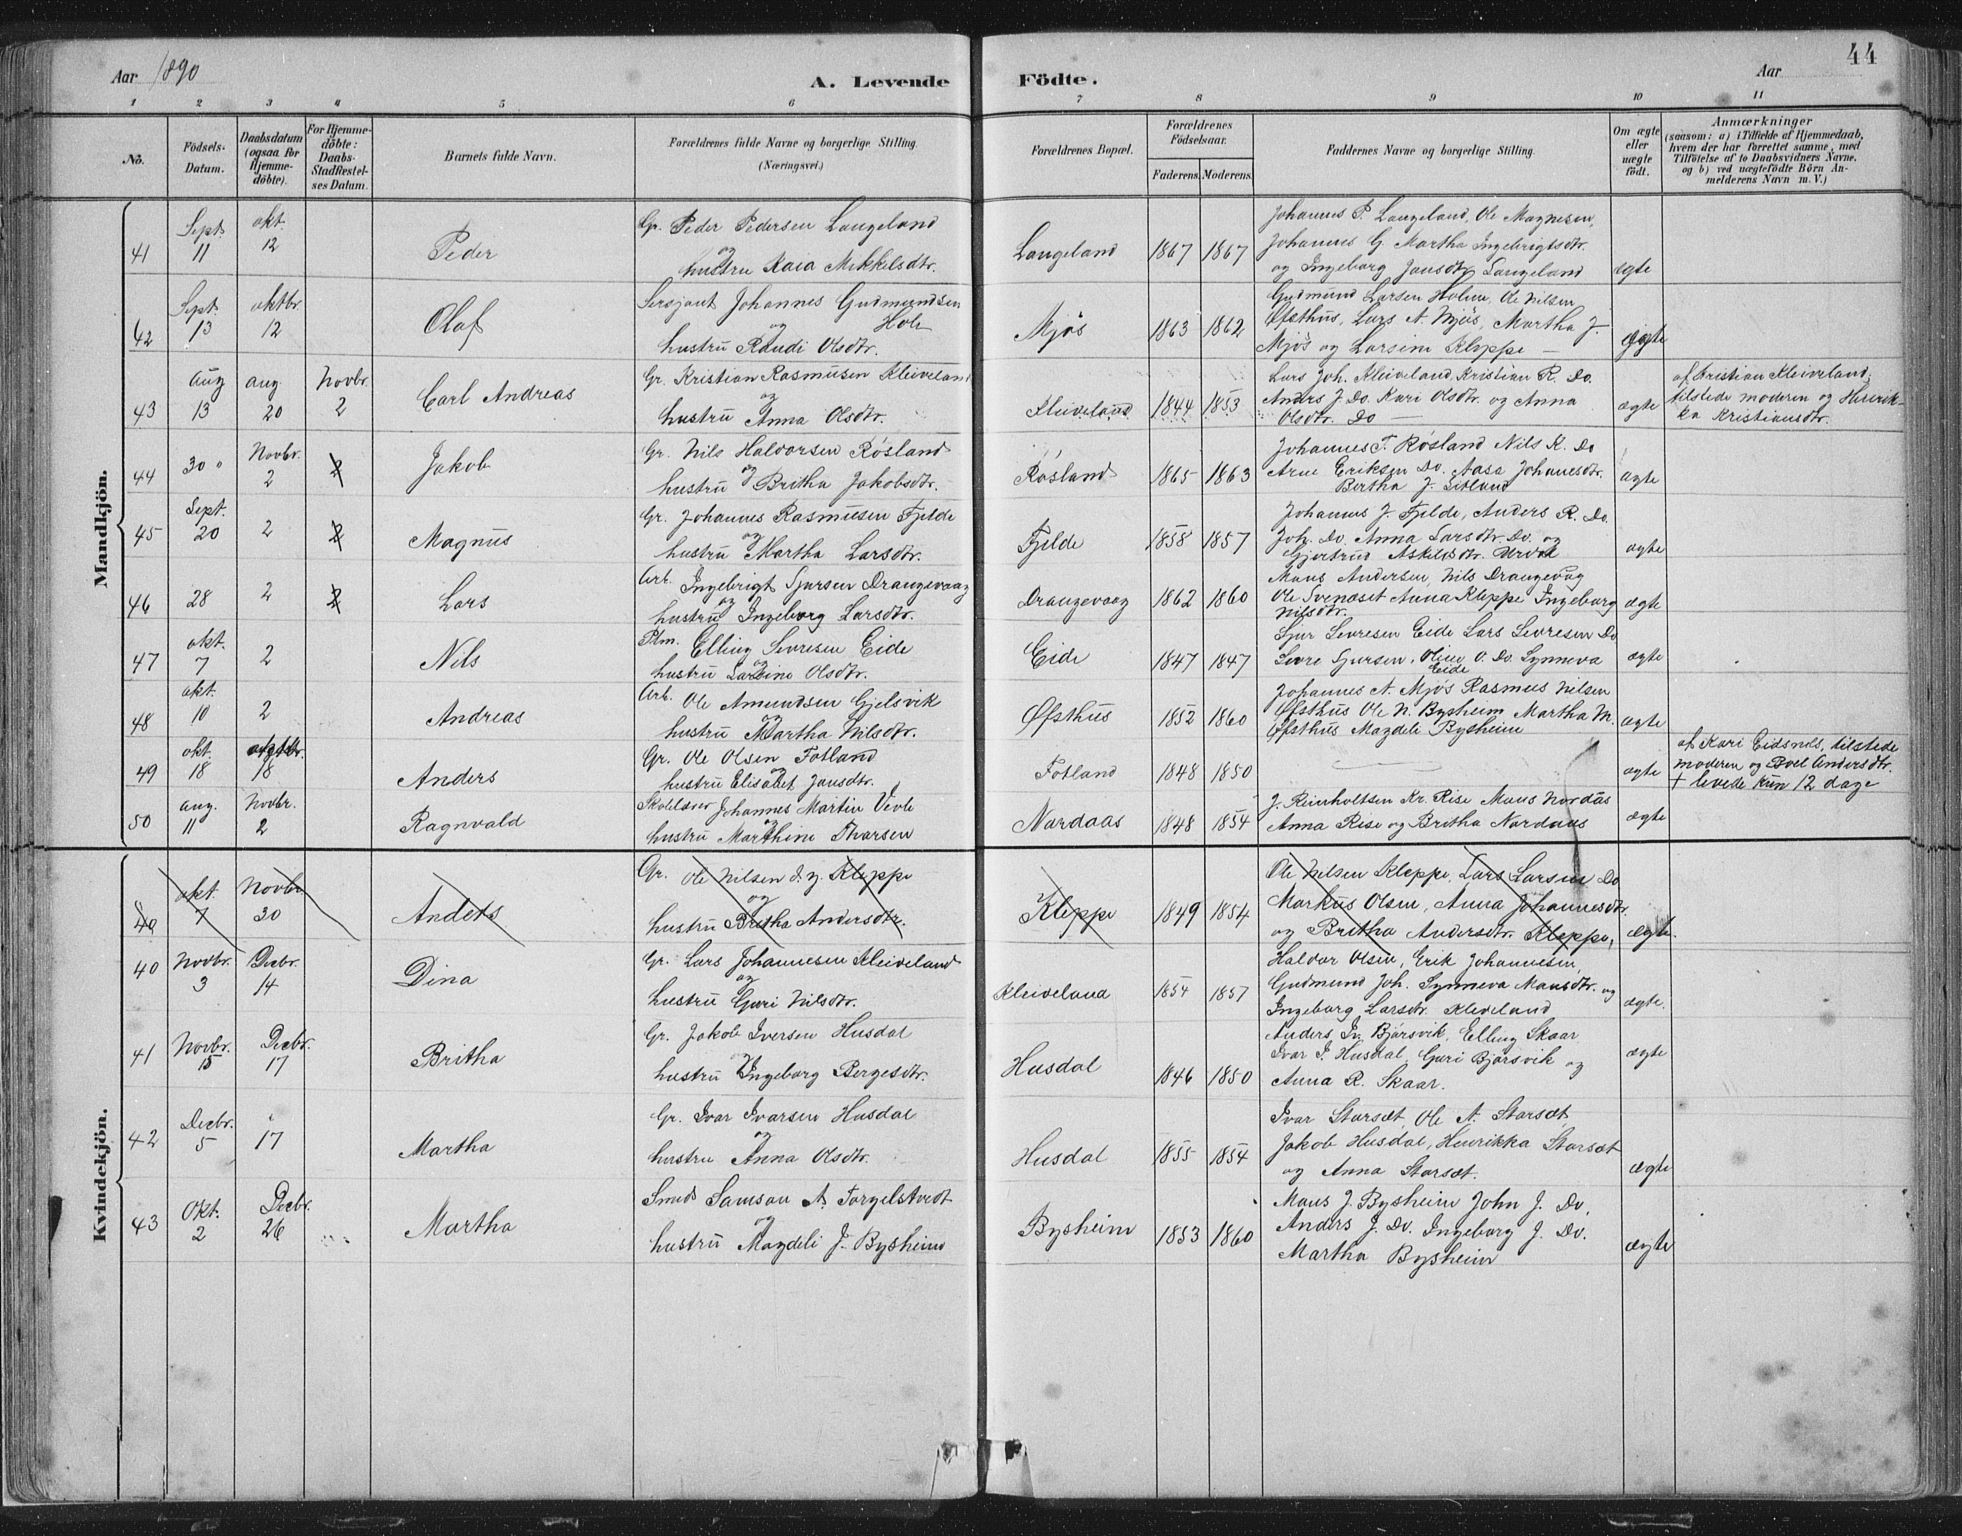 Aar 1890
A. Levende Födte.
Aar
44
1 2 3 4 5 6 7 8 9 10 11
No.
Födsels-Datum.
Daabsdatum (ogsaa for Hjemme-döbte).
For Hjemme-döbte: Daabs-Stadfæstel-ses Datum.
Barnets fulde Navn.
Forældrenes fulde Navne og borgerlige Stilling. (Næringsvei.)
Forældrenes Bopæl.
Forældrenes Födselsaar.
Faderens. Moderens.
Faddernes Navne og borgerlige Stilling.
Om ægte eller uægte födt.
Anmærkninger
(saasom: a) i Tilfælde af Hjemmedaab,
hvem der har forrettet samme, med
Tilföielse af to Daabsvidners Navne,
og b) ved uægtefödte Börn An-
melderens Navn m. V.)
Mandkjön.
41 Sept. 11 okt. 12 Peder
Gr. Peder Pedersen Langeland
og hustru Kaia Mikkelsdtr.
Langeland 1867 1867
Johannes P. Langeland, Ole Magnesen,
Johannes G Martha Ingebrigtsdtr.
og Ingeborg Jansdtr Langeland
ægte
42 Sept. 13 oktbr. 12 Olaf
Sersjant Johannes Gudmundsen
og Hole
hustru Randi Olsdtr.
Mjøs 1863 1862
Gudmund Larsen Holm, Ole Nilsen
Øfsthus, Lars A. Mjøs, Martha J.
Mjøs og Larsine Kleppe —
ægte
43 Aug 13 aug. 20 Novbr. 2 Carl Andreas
Gr. Kristian Rasmusen Kleiveland
og
hustru Anna Olsdtr.
Kleiveland 1844 1853
Lars Joh. Kleiveland, Kristian R. Do.
Anders J Do. Kari Olsdtr. og Anna
Olsdtr. Do —
ægte
af Kristian Kleiveland,
tilstede moderen og Henrik-
ka Kristiansdtr.
44 30 " Novbr. 2 2 Jakob
Gr. Nils Halvorsen Røsland
hustru og Britha Jakobsdtr.
Røsland 1865 1863
Johannes T. Røsland Nils K. Do
Arne Eriksen Do. Aasa Johanesdtr.
Bertha J.
ægte
45 Sept. 20 2 2 Magnus
Gr. Johannes Rasmusen Fjelde
og
hustru Martha Larsdtr.
Fjelde 1858 1857
Johannes J. Fjelde, Anders R. Do.
Joh. Do. Anna Larsdtr. Do. og
Gjertrud Askildsdtr.
ægte
46 28 2 2 Lars
Arb. Ingebrigt Sjursen Drangevaag
og
hustru Ingeborg Larsdtr.
Drangevaag 1862 1860
Mons Andersen, Nils Drangevag
Ole Svenæset Anna Kleppe Ingeborg
Nilsdtr.
ægte
47 okt. 7 2 Nils
Plm. Elling Sevresen Eide
og
hustru Larsine Olsdtr.
Eide 1847 1847
Sjur Sevresen Eide Lars Sevresen Do
Sevre Sjursen, Oline O. Do. Synneva
Eide
ægte
48 okt. 10 2 Andreas
Arb. Ole Amundsen Gjelsvik
og
hustru Martha Nilsdtr.
Øfsthus 1852 1860
Johannes A. Mjøs Rasmus Nilsen
Øfsthus Ole N. Bysheim Martha M.
Øfsthus Magdeli Bysheim
ægte
49 okt. 18 18 Anders
Gr. Ole Olsen Fotland
og
hustru Elisabet Jansdtr.
Fotland 1848 1850
ægte
af Kari Eidsnes, tilstede
moderen og Boel Andersdtr.
+ levede kun 12 dage
50 aug. 11 Novbr. 2 Ragnvald
Johannes Martin Vevle
og
hustru Marthine Tharsen
Nordaas 1848 1854
J. Reinholtsen Kr. Rise Mons Nordås
Anna Rise og Britha Nordaas
ægte
Kvindekjön.
40 okt. 7 Novbr 30 Anders
Gr. Ole Nilsen d. y. Kleppe
og
hustru Britha Andersdtr.
Kleppe 1849 1854
Ole Nilsen Kleppe, Lars Larsen Do
Markus Olsen, Anna Johannesdtr.
og Britha Andersdtr. Kleppe,
ægte.
40 Novbr. 3 Decbr. 14 Dina
Gr. Lars Johannesen Kleiveland
og
hustru Guri Nilsdtr.
Kleiveland 1854 1857
Halvor Olsen, Erik Johannesen,
Gudmund Joh. Synneva Monsdtr. og
Ingeborg Larsdtr. Kleveland
ægte.
41 Novbr. 15 Decbr. 17 Britha
Gr. Jakob Iversen Husdal
og
hustru Ingeborg Bergesdtr.
Husdal 1846 1850
Anders Iv. Bjørsvik, Elling Skaar
Ivar J. Husdal, Guri Bjørsvik og
Anna R. Skaar.
ægte
42 Decbr. 5 17 Martha
Gr. Ivar Ivarsen Husdal
og
hustru Anna Olsdtr.
Husdal 1855 1854
Ivar Storsæt, Ole A. Storsæt,
Jakob Husdal, Henrikka Storsæt
og Anna Storsæt.
ægte
43 Okt. 2 Decbr. 26 Martha
Smed Samson A. Torgelstvedt
og
hustru Magdeli J. Bysheim
Bysheim 1853 1860
Mons J. Bysheim John J. Do.
Anders J. Do. Ingeborg J. Do.
Martha Bysheim
ægte